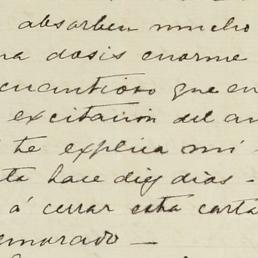 absorben mucho
na dosis enorme
cuantioso que en
excitación del an
te explica mi
ta hace diez dias -
á cerrar esta carta
morado -